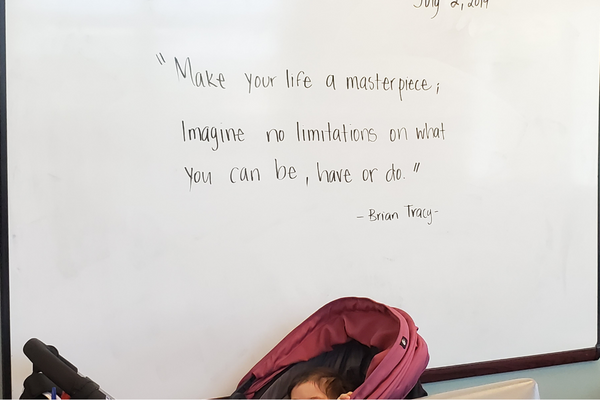 July 2, 2019
"Make your life a masterpiece;
Imagine no limitations on what
you can be, have or do."
- Brian Tracy-